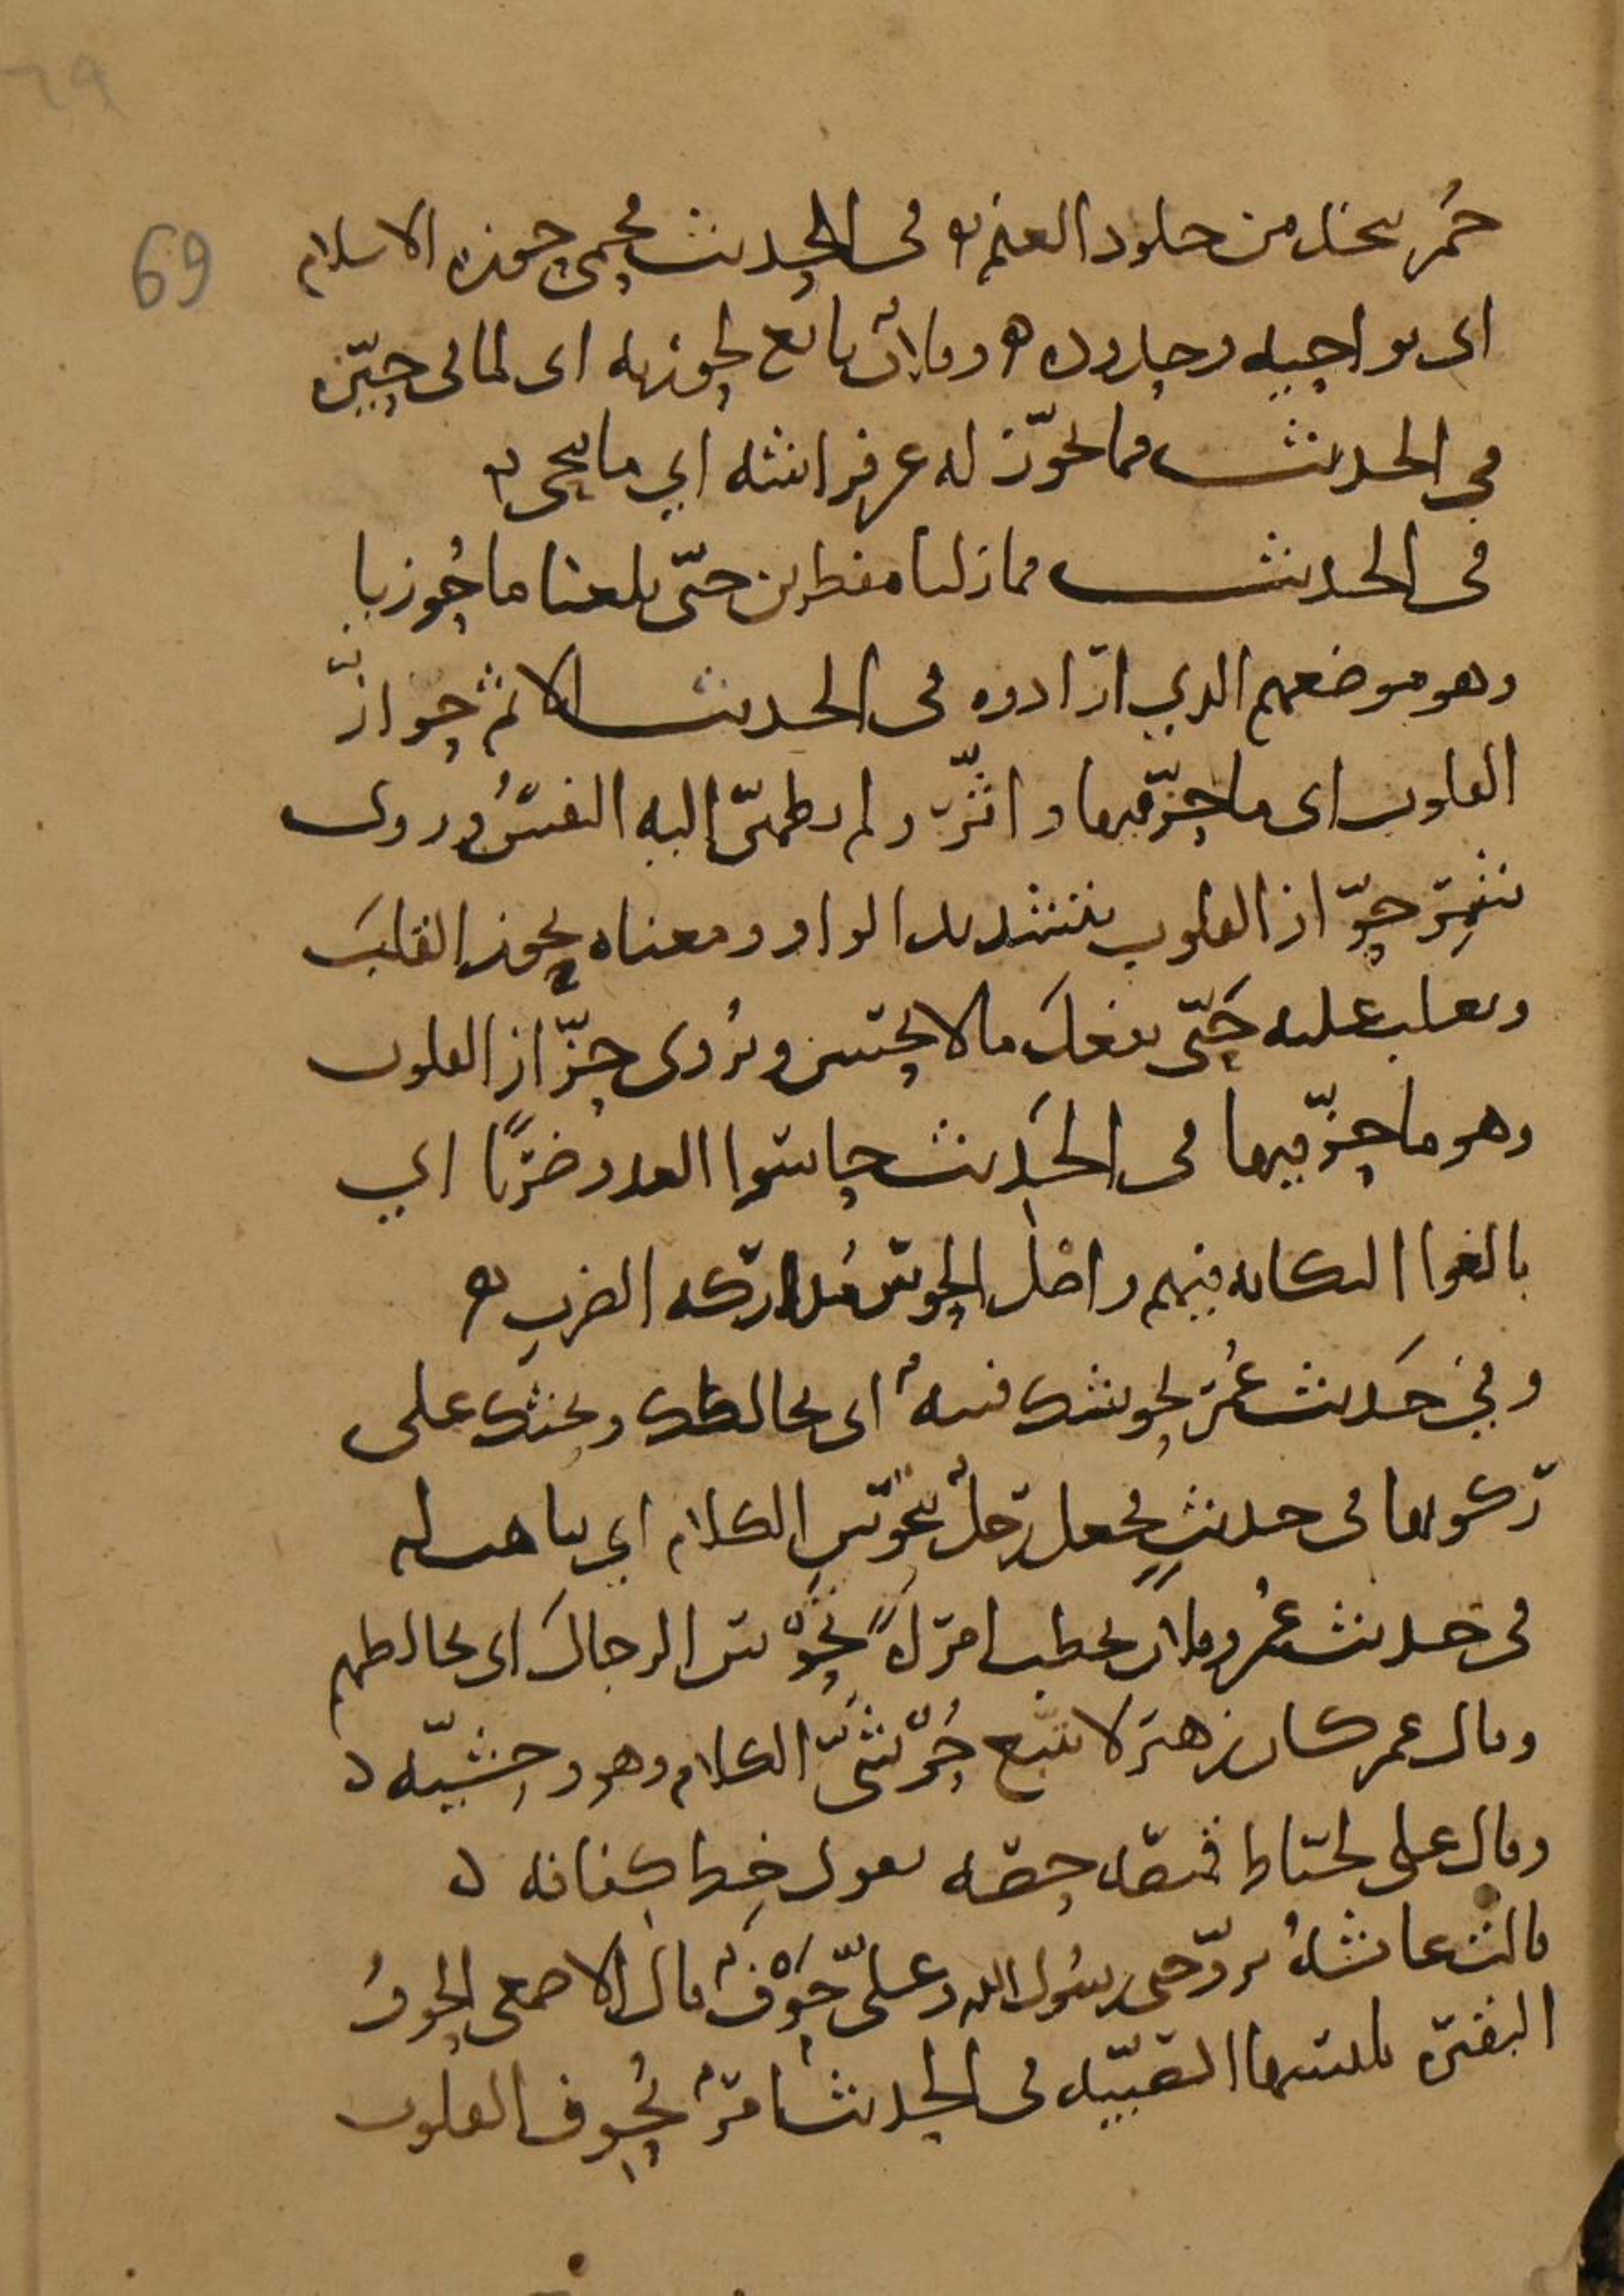 69
حُمْر تتخذ من جلود الغنم في الحديث فحمى حوزة الاسلام
اي نواحيه وحدوده وفلان مانع لحوزته اي لما في حيّزه
في الحديث فما تحوّز له عن فراشه اي ما تنحى
في الحديث فما زلنا مفطرين حتى بلغنا ماحُوزنا
وهو موضعهم الذي ارادوه في الحديث الاثم حوازّ
القلوب اي ما حزّ فيها واثّر ولم تطمئنّ اليه النفسُ وروى
شمر حوّاز القلوب بتشديد الواو ومعناه يحوز القلبَ
ويغلب عليه حَتّى يفعلَ ما لا يحسن ويُروى حزّاز القلوب
وهو ما حزّ فيها في الحَديث حاسوا العدو ضربًا اي
بالغوا النكاية فيهم واصْل الحوس مُداركه الضربِ
وفي حَديث عُمَر تحوسك فتنةٌ اي تخالطك وتحثك على
ركوبها في حديثٍ فجعل رجلٌ يتحوّس الكلام اي يتاهب له
في حديث عُمَر وفلان يخطب امرأةً تحُوس الرجالَ اي تخالطهم
وقال عمر كان زهير لا يتبع حُوشيّ الكلام وهو وحشيّه
وقال علي لخيّاط قميصه حصه يقول خِط كفافه
قالت عائشةُ تزوّجني رسُول الله وعليّ حَوْفٌ قال الاصمعي الحوفُ
البقيرة تلبسها الصبيّة في الحديث امرٌ يُحوف القلوب